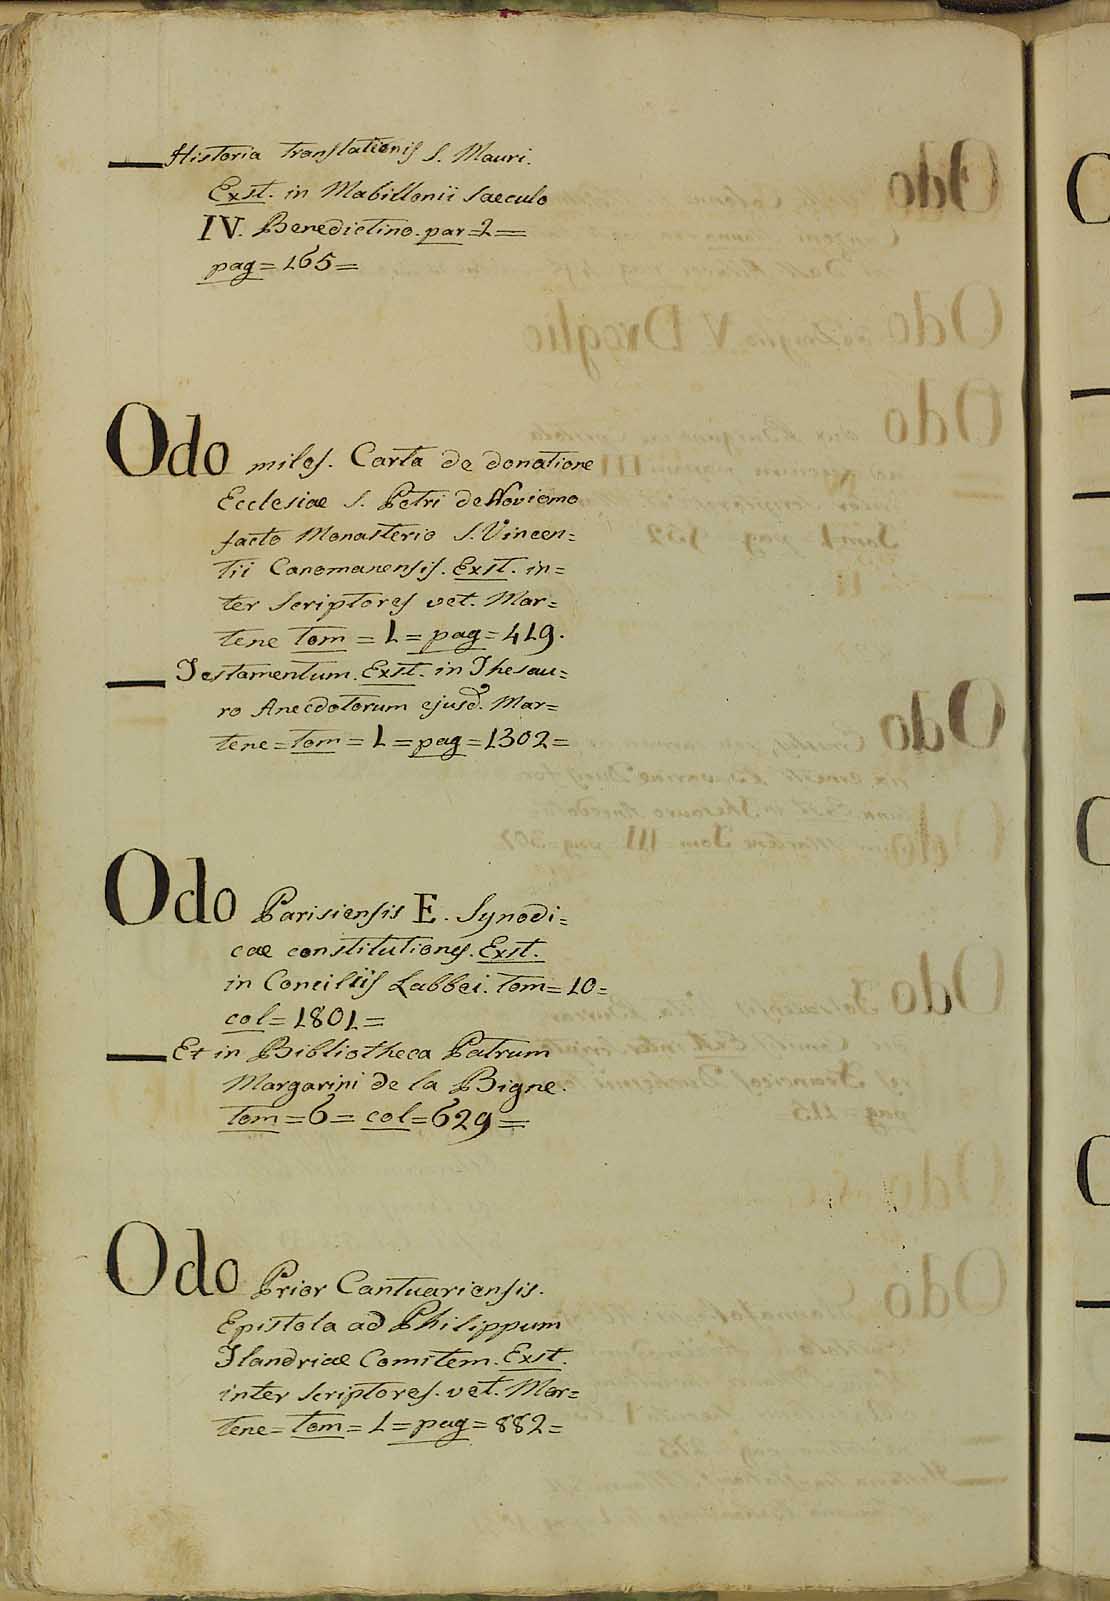 — Historia translationis S. Mauri.
Exst. in Mabillonii saeculo
IV. Benedictino. par=2=
pag=165=
Odo miles. Carta de donatione
Ecclesiae S. Petri de Noviomo
facto Monasterio S. Vincen=
tii Canomanensis. Exst. in=
ter Scriptores vet. Mar=
tene tom=1=pag=419.
— Testamentum. Exst. in Thesau=
ro Anecdotorum ejusd. Mar=
tene=tom=1=pag=1302=
Odo Parisiensis E. Synodi=
cae constitutiones. Exst.
in Conciliis Labbei. tom=10=
col=1801=
— Et in Bibliotheca Patrum
Margarini de la Bigne.
tom=6=col=629=
Odo Prior Cantuariensis.
Epistola ad Philippum
Flandriae Comitem. Exst.
inter Scriptores. vet. Mar=
tene=tom=1=pag=882=